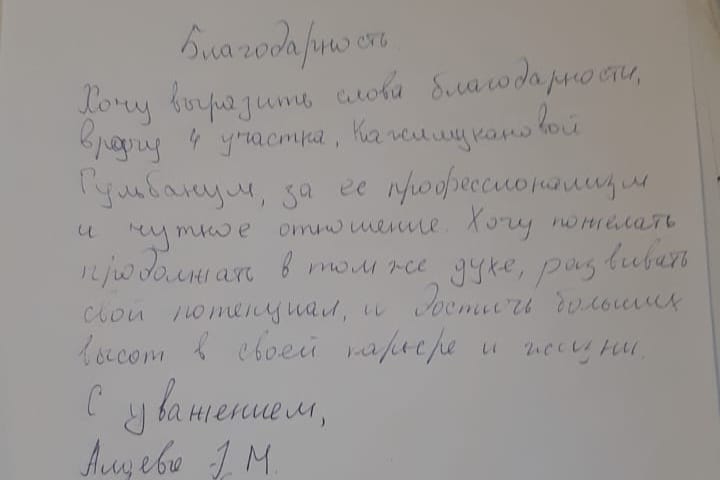 Благодарность.
Хочу выразить слова благодарности,
врачу 4 участка, Кажимукановой
Гульбанум, за ее профессионализм
и чуткое отношение. Хочу пожелать
продолжать в том же духе, развивать
свой потенциал, и достичь больших
высот в своей карьере и жизни.
С уважением,
М.